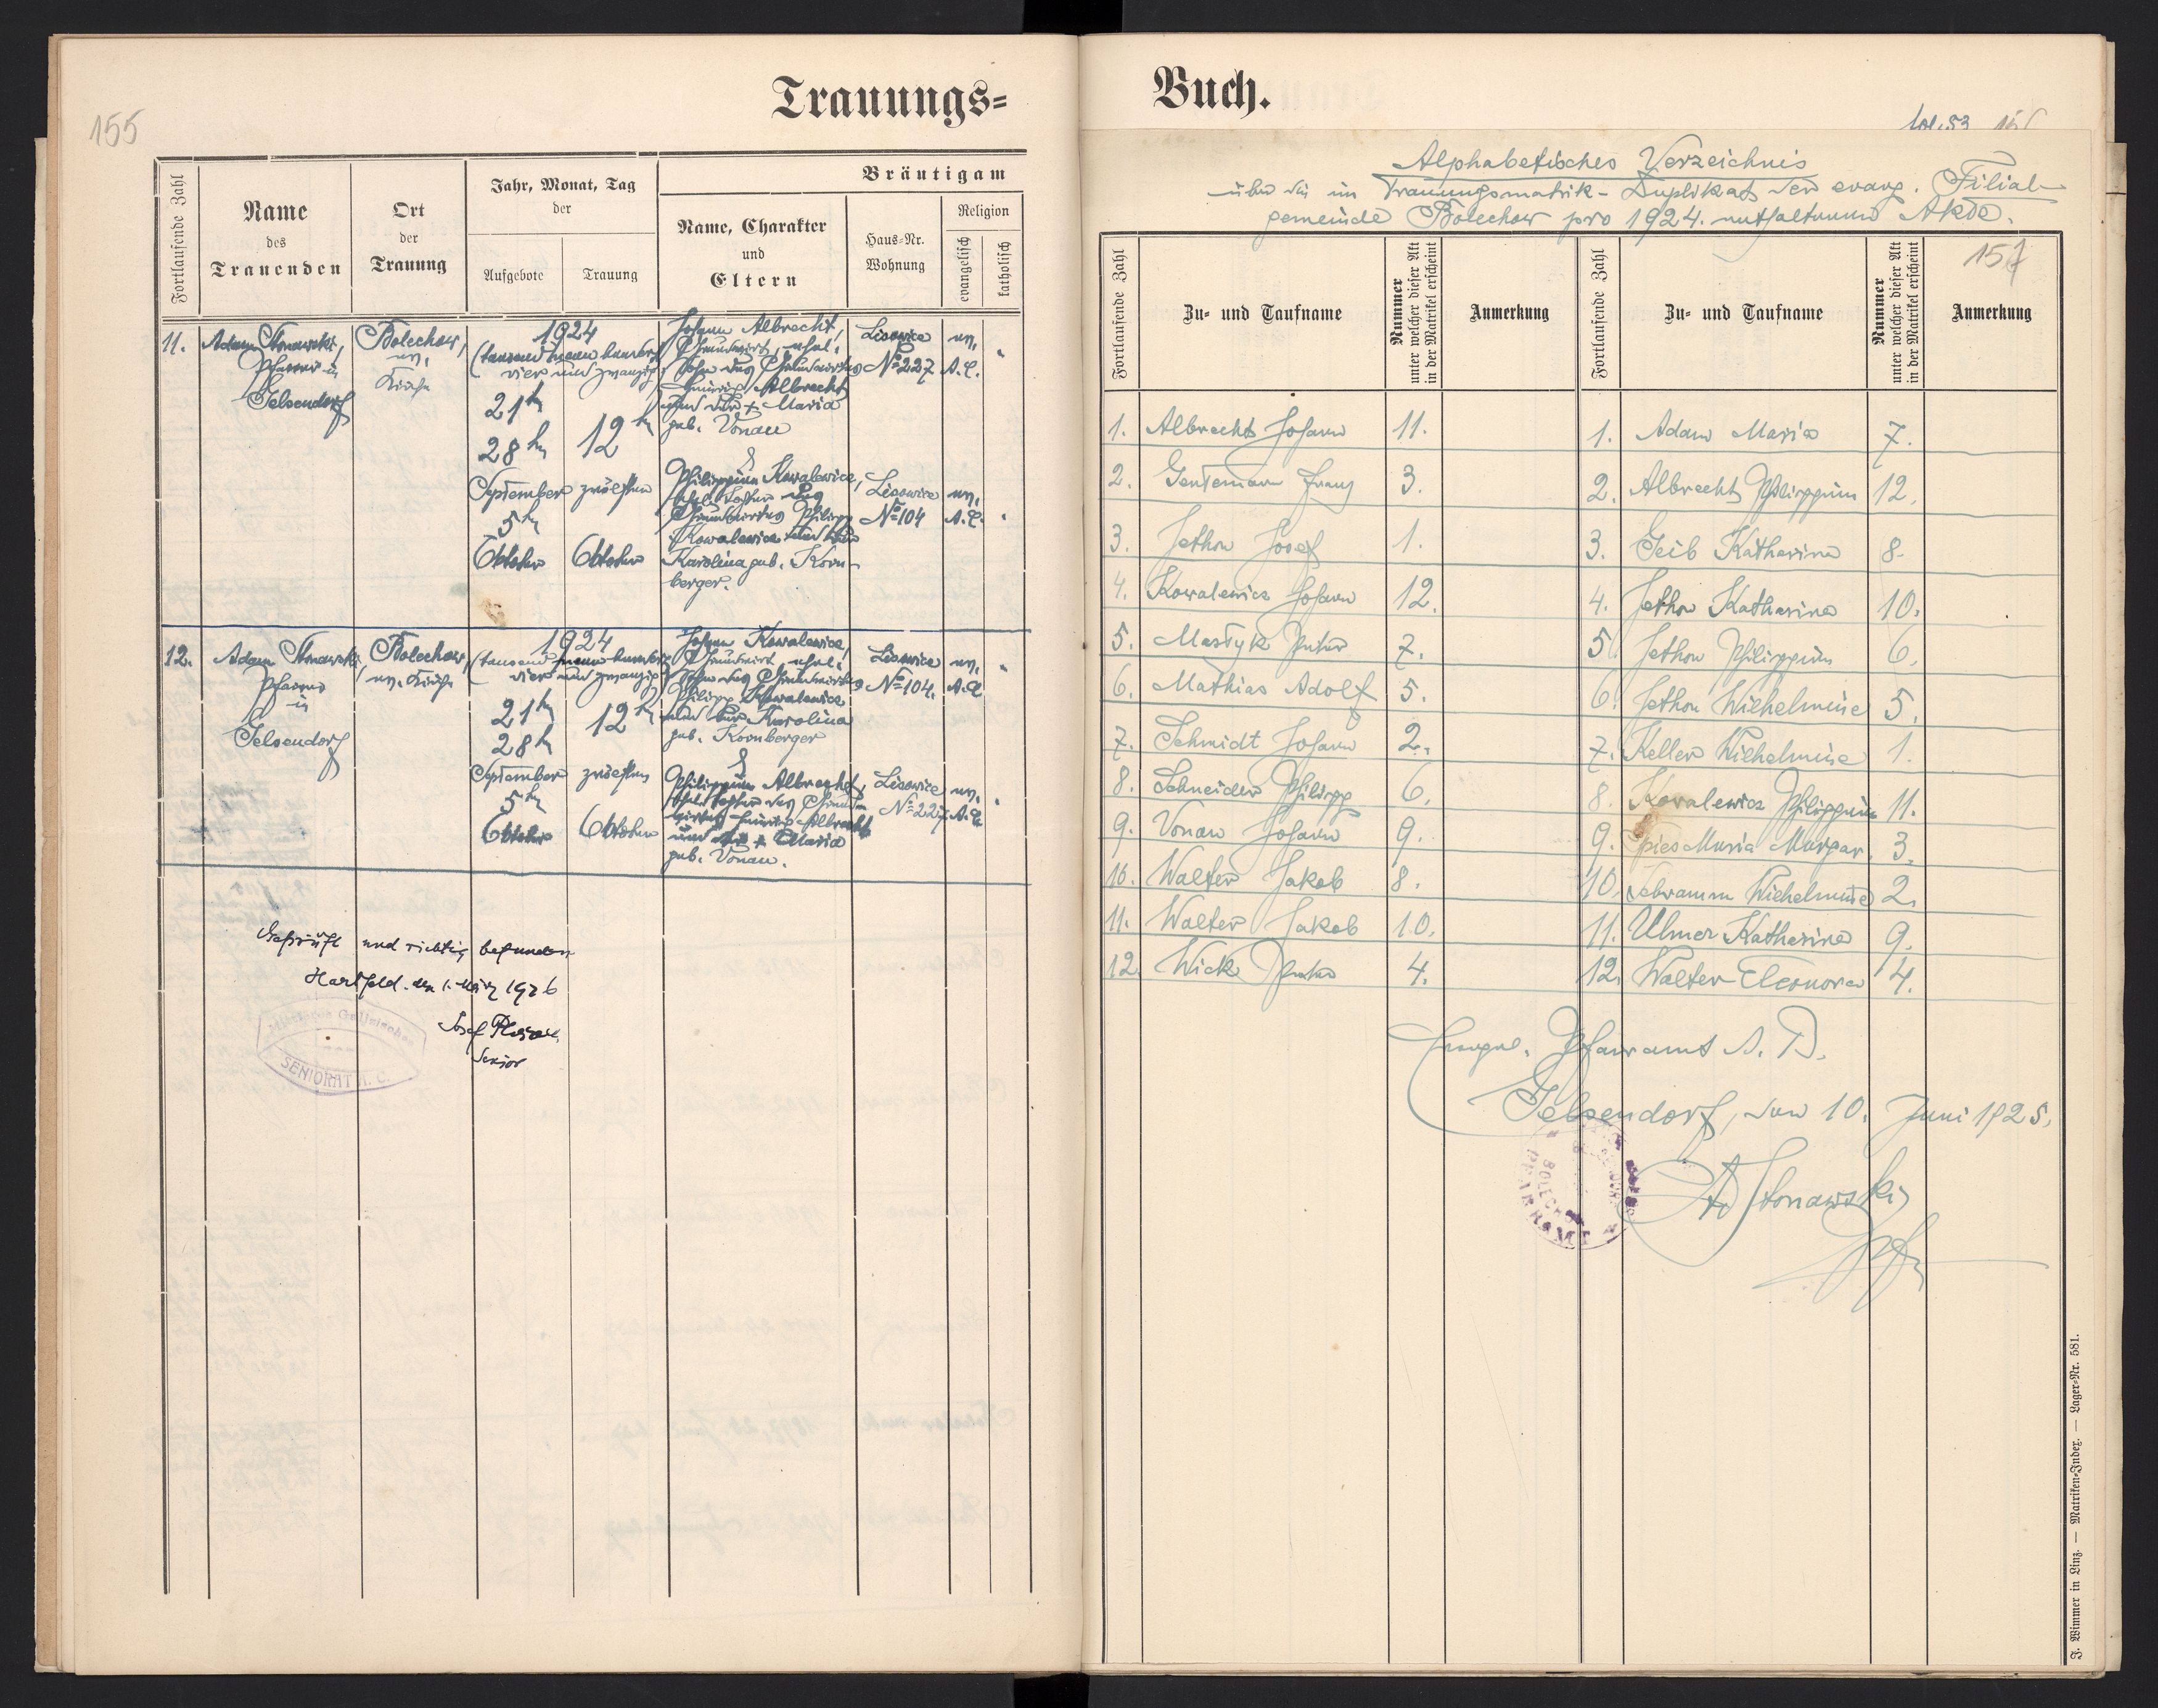 Trauungs=
155
Fortlaufende Zahl
Name
des
Trauenden
Ort
der
Trauung
Jahr, Monat, Tag
der
Aufgebote
Trauung
Bräutigam
Name, Charakter
und
Eltern
Haus=Nr.
Wohnung
Religion
evangelisch
katholisch
11.
Adam Stonawski,
Pfarrer in
Gelsendorf
Bolechow,
ev.
Kirche
1924
(tausend neun hundert
vier und zwanzig)
21ten
28ten
September
5ten
Oktober
12ten
zwölften
Oktober
Johann Albrecht,
Grundwirt, ehel.
Sohn des Grundwirtes
Heinrich Albrecht
und der + Maria
geb. Vonau
&
Philippine Kowalewicz,
ehel. Tochter des
Grundwirtes Philipp
Kowalewicz und der
Karolina geb. Korn-
berger.
Lisowice
No 227
Lisowice
No 104
ev.
A.C.
ev.
A.C.
12.
Adam Stonawski,
Pfarrer
in
Gelsendorf
Bolechow,
ev. Kirche
1924
(tausend neun hundert
vier und zwanzig)
21ten
28ten
September
5ten
Oktober
12ten
zwölften
Oktober
Johann Kowalewicz,
Grundwirt, ehel.
Sohn des Grundwirtes
Philipp Kowalewicz
und der Karolina
geb. Kornberger
&
Philippine Albrecht,
ehel. Tochter des Grund-
wirtes Heinrich Albrecht
und der + Maria
geb. Vonau.
Lisowice
No 104.
Lisowice
No 227.
ev.
A.C.
ev.
A.C.
Geprüft und richtig befunden
Hartfeld, den 1. März 1926
Josef
Senior
SENIORAT A. C.
Buch.
Alphabetisches Verzeichnis
über die im Trauungsmatrik-Duplikat der evang. Filial-
gemeinde Bolechow pro 1924. enthaltenen Akte.
157
Fortlaufende Zahl
Zu= und Taufname
Nummer
unter welcher dieser Akt
in der Matrikel erscheint
Anmerkung
Fortlaufende Zahl
Zu= und Taufname
Nummer
unter welcher dieser Akt
in der Matrikel erscheint
Anmerkung
1. Albrecht Johann 11. 1. Adam Maria 7.
2. Gentemann Franz 3. 2. Albrecht Philippine 12.
3. Jethon Josef 1. 3. Geib Katharina 8.
4. Kowalewicz Johann 12. 4. Jethon Katharina 10.
5. Mastyk Peter 7. 5. Jethon Philippine 6.
6. Mathias Adolf 5. 6. Jethon Wilhelmine 5.
7. Schmidt Johann 2. 7. Keller Wilhelmine 1.
8. Schneider Philipp 6. 8. Kowalewicz Philippine 11.
9. Vonau Johann 9. 9. Spies Maria Margar. 3.
10. Walter Jakob 8. 10. Wilhelmine 2.
11. Walter Jakob 10. 11. Ulmer Katharina 9.
12. Wick Peter 4. 12. Walter Eleonora 4.
Evangel. Pfarramt A. B.
Gelsendorf, den 10. Juni 1925.
A Stonawski
Pfr
BOLECHÓW
PFARRAMT
J. Wimmer in Linz. — Matriken=Index. — Lager=Nr. 581.